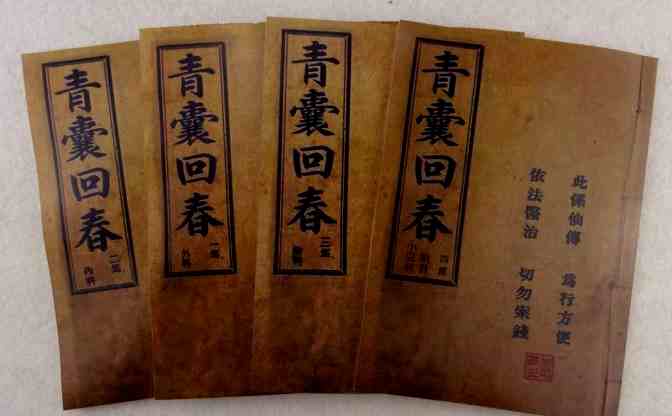 青囊回春
二集
內科
青囊回春
一集
外科
青囊回春
三集
青囊回春
四集
小兒科
此係仙傳 為行方便
依法醫治 切勿索錢